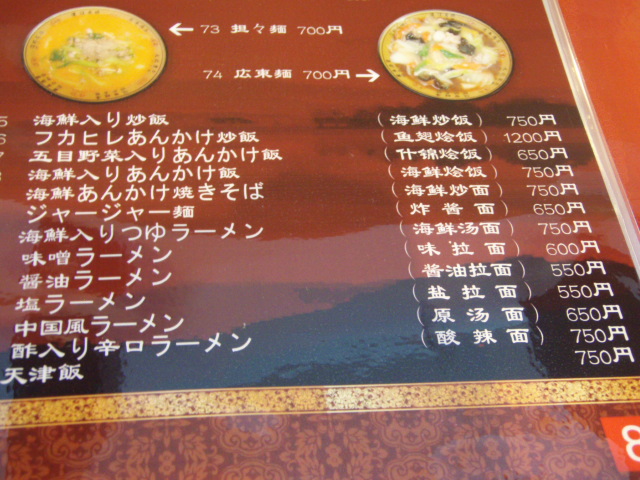 73 担々麺 700円
74 広東麺 700円
5 海鮮入り炒飯 (海鲜炒饭) 750円
6 フカヒレあんかけ炒飯 (鱼翅烩饭) 1200円
7 五目野菜入りあんかけ飯 (什锦烩饭) 650円
8 海鮮入りあんかけ飯 (海鲜烩饭) 750円
海鮮あんかけ焼きそば (海鲜炒面) 750円
ジャージャー麺 (炸酱面) 650円
海鮮入りつゆラーメン (海鲜汤面) 750円
味噌ラーメン (味拉面) 600円
醤油ラーメン (酱油拉面) 550円
塩ラーメン (盐拉面) 550円
中国風ラーメン (原汤面) 650円
酢入り辛口ラーメン (酸辣面) 750円
天津飯 750円
8